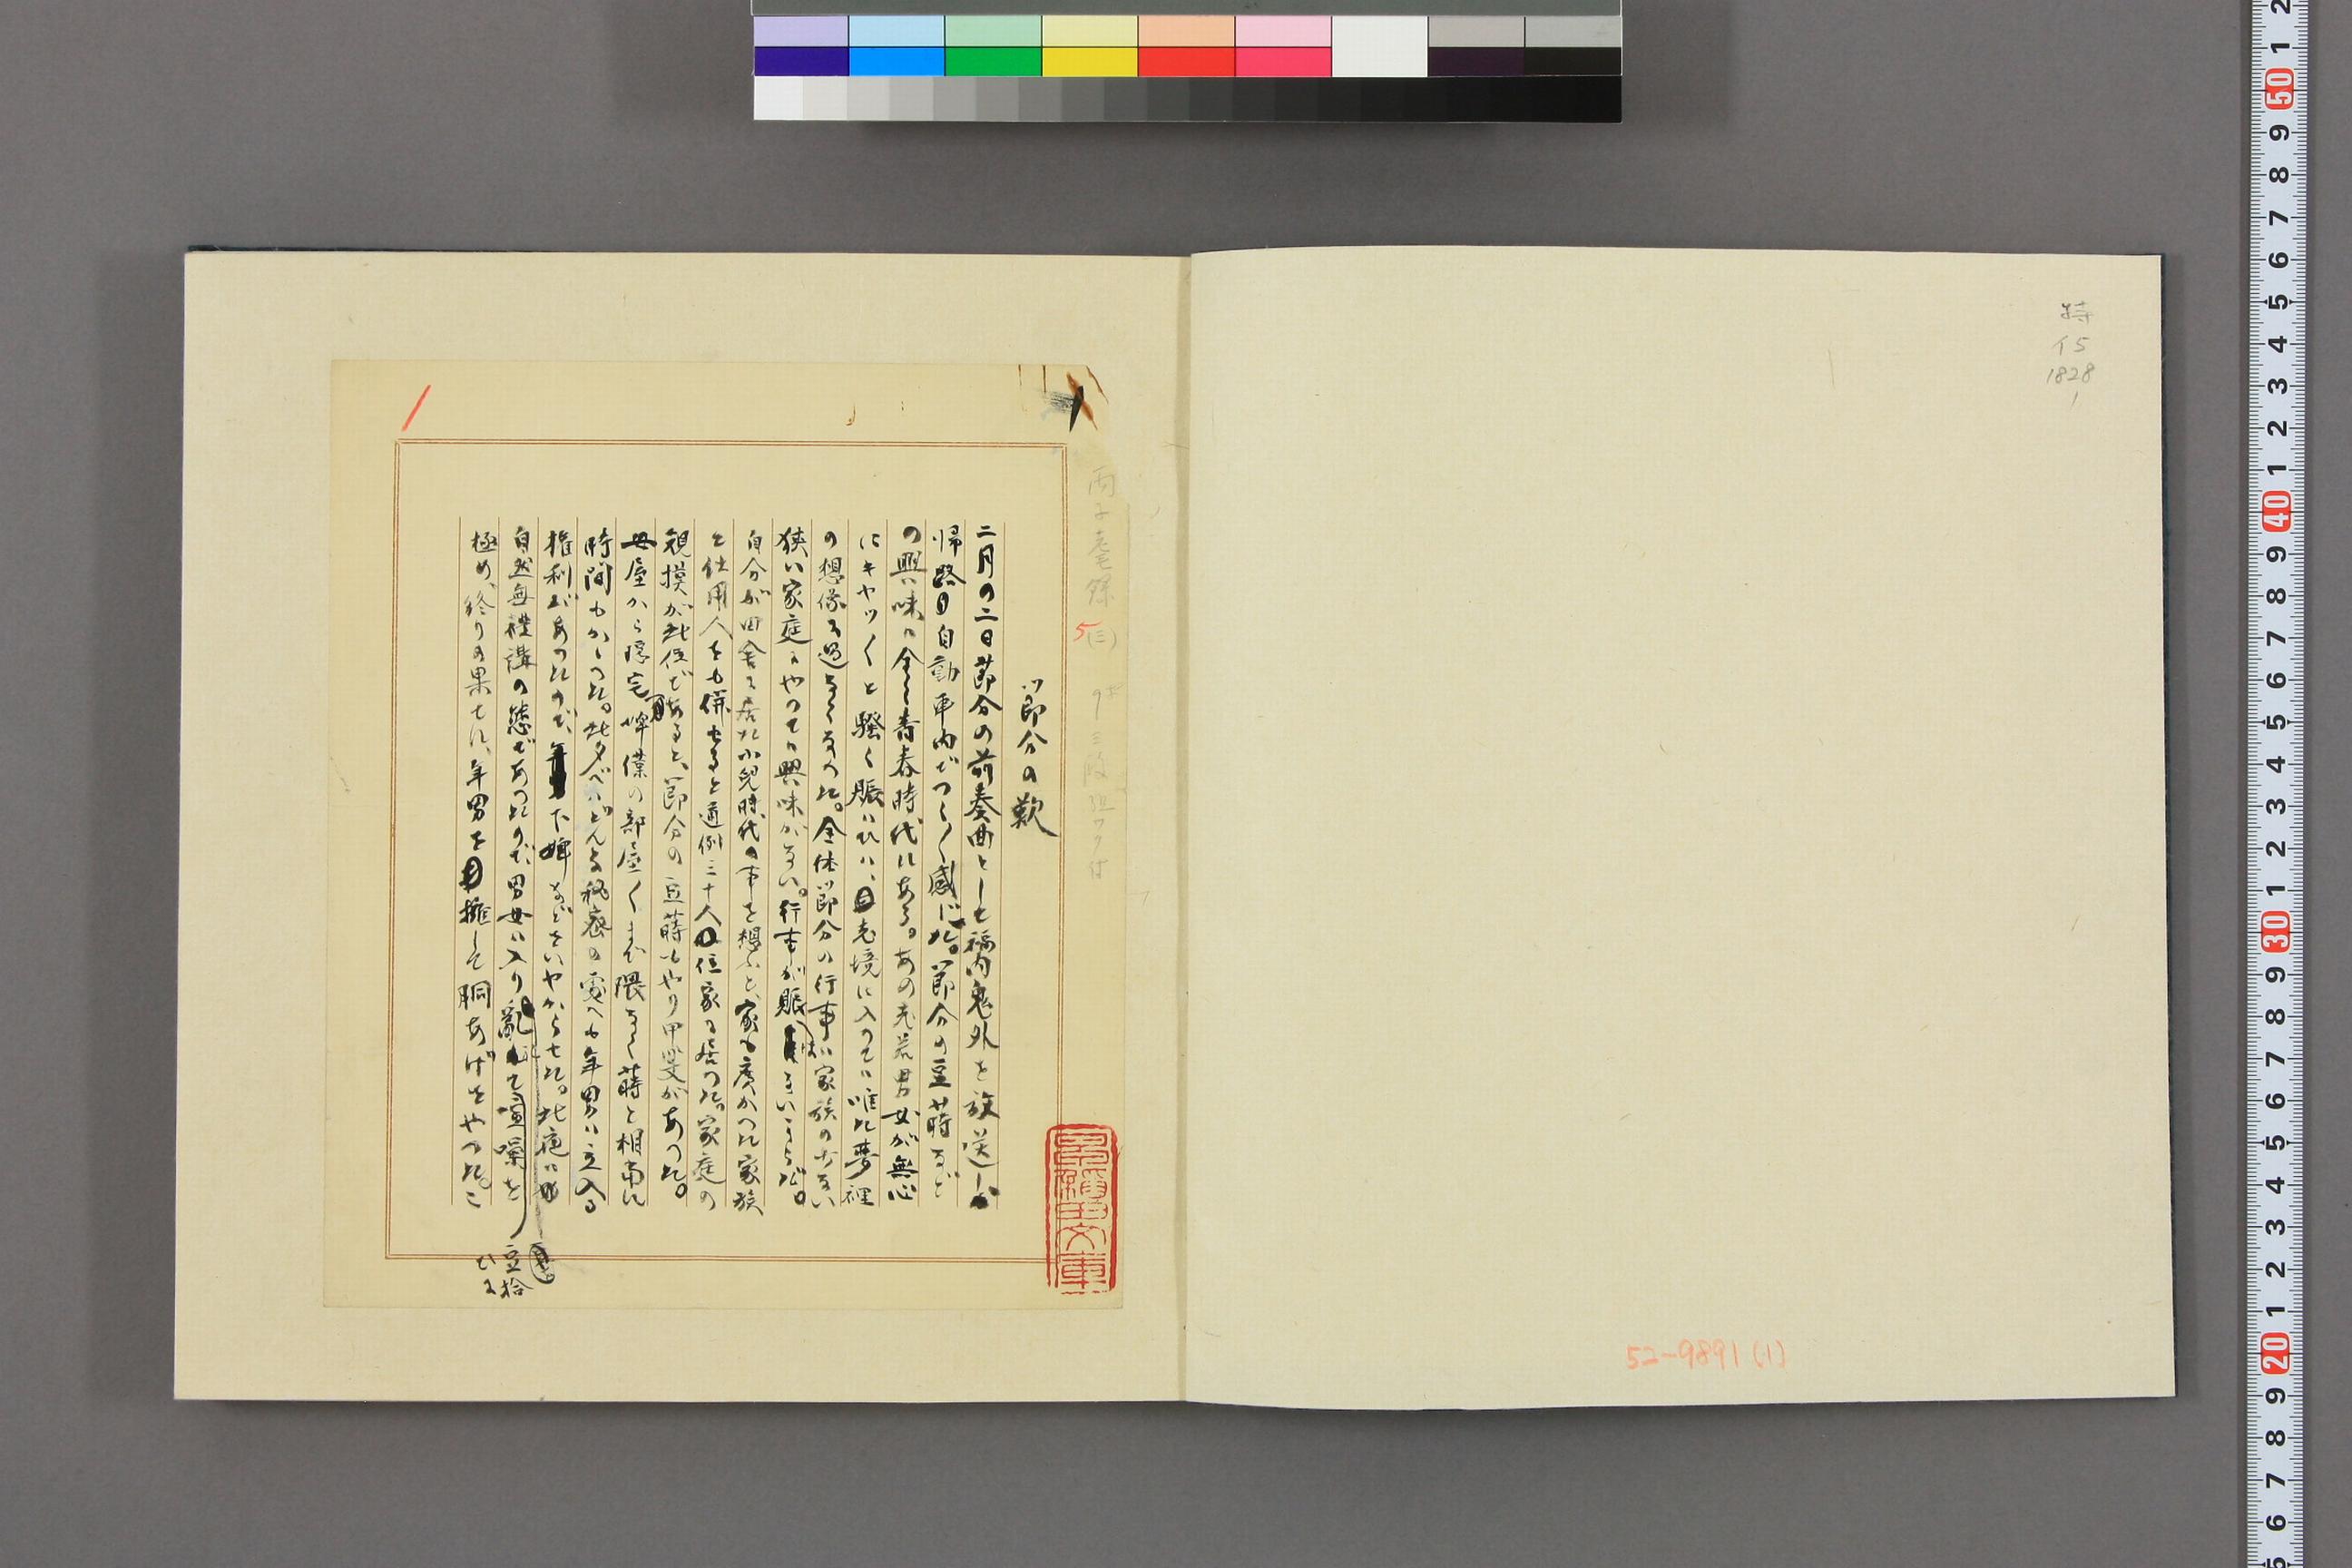 特
イ5
1828
1
52-9891(1)
丙子耄録 5 (三)
節分の歎
二月の二日節分の前奏曲として福内鬼外を放送し
帰路自動車内でつく〲感じた。節分の豆蒔など
の興味は全く青春時代にある。あの老若男女が無心
にキャッ〱と騒く賑はひは、老境に入つては唯た夢裡
の想像に過きなくなつた。全体節分の行事は家族の少ない
狭い家庭にやつては興味がない。行事が賑はないからだ。
自分が田舎に居た小児時代の事を想ふと、家も広かつた家族
と仕用人をも併せると通例三十人位家に居つた。家庭の
規模が此位であると、節分の豆蒔もやり甲斐があつた。
母屋から隠宅婢僕の部屋〱まで隈なく蒔と相当に
時間もかゝつた。此夕べはどんな秘密の処へも年男は立入る
権利があつたので、下婢などをいやがらせた。此夜は
自然無礼講の態であつたので男女入り乱れて喧噪を
豆拾ひに
極め、終りの果ては、年男を擁して胴あげをやつた。こ